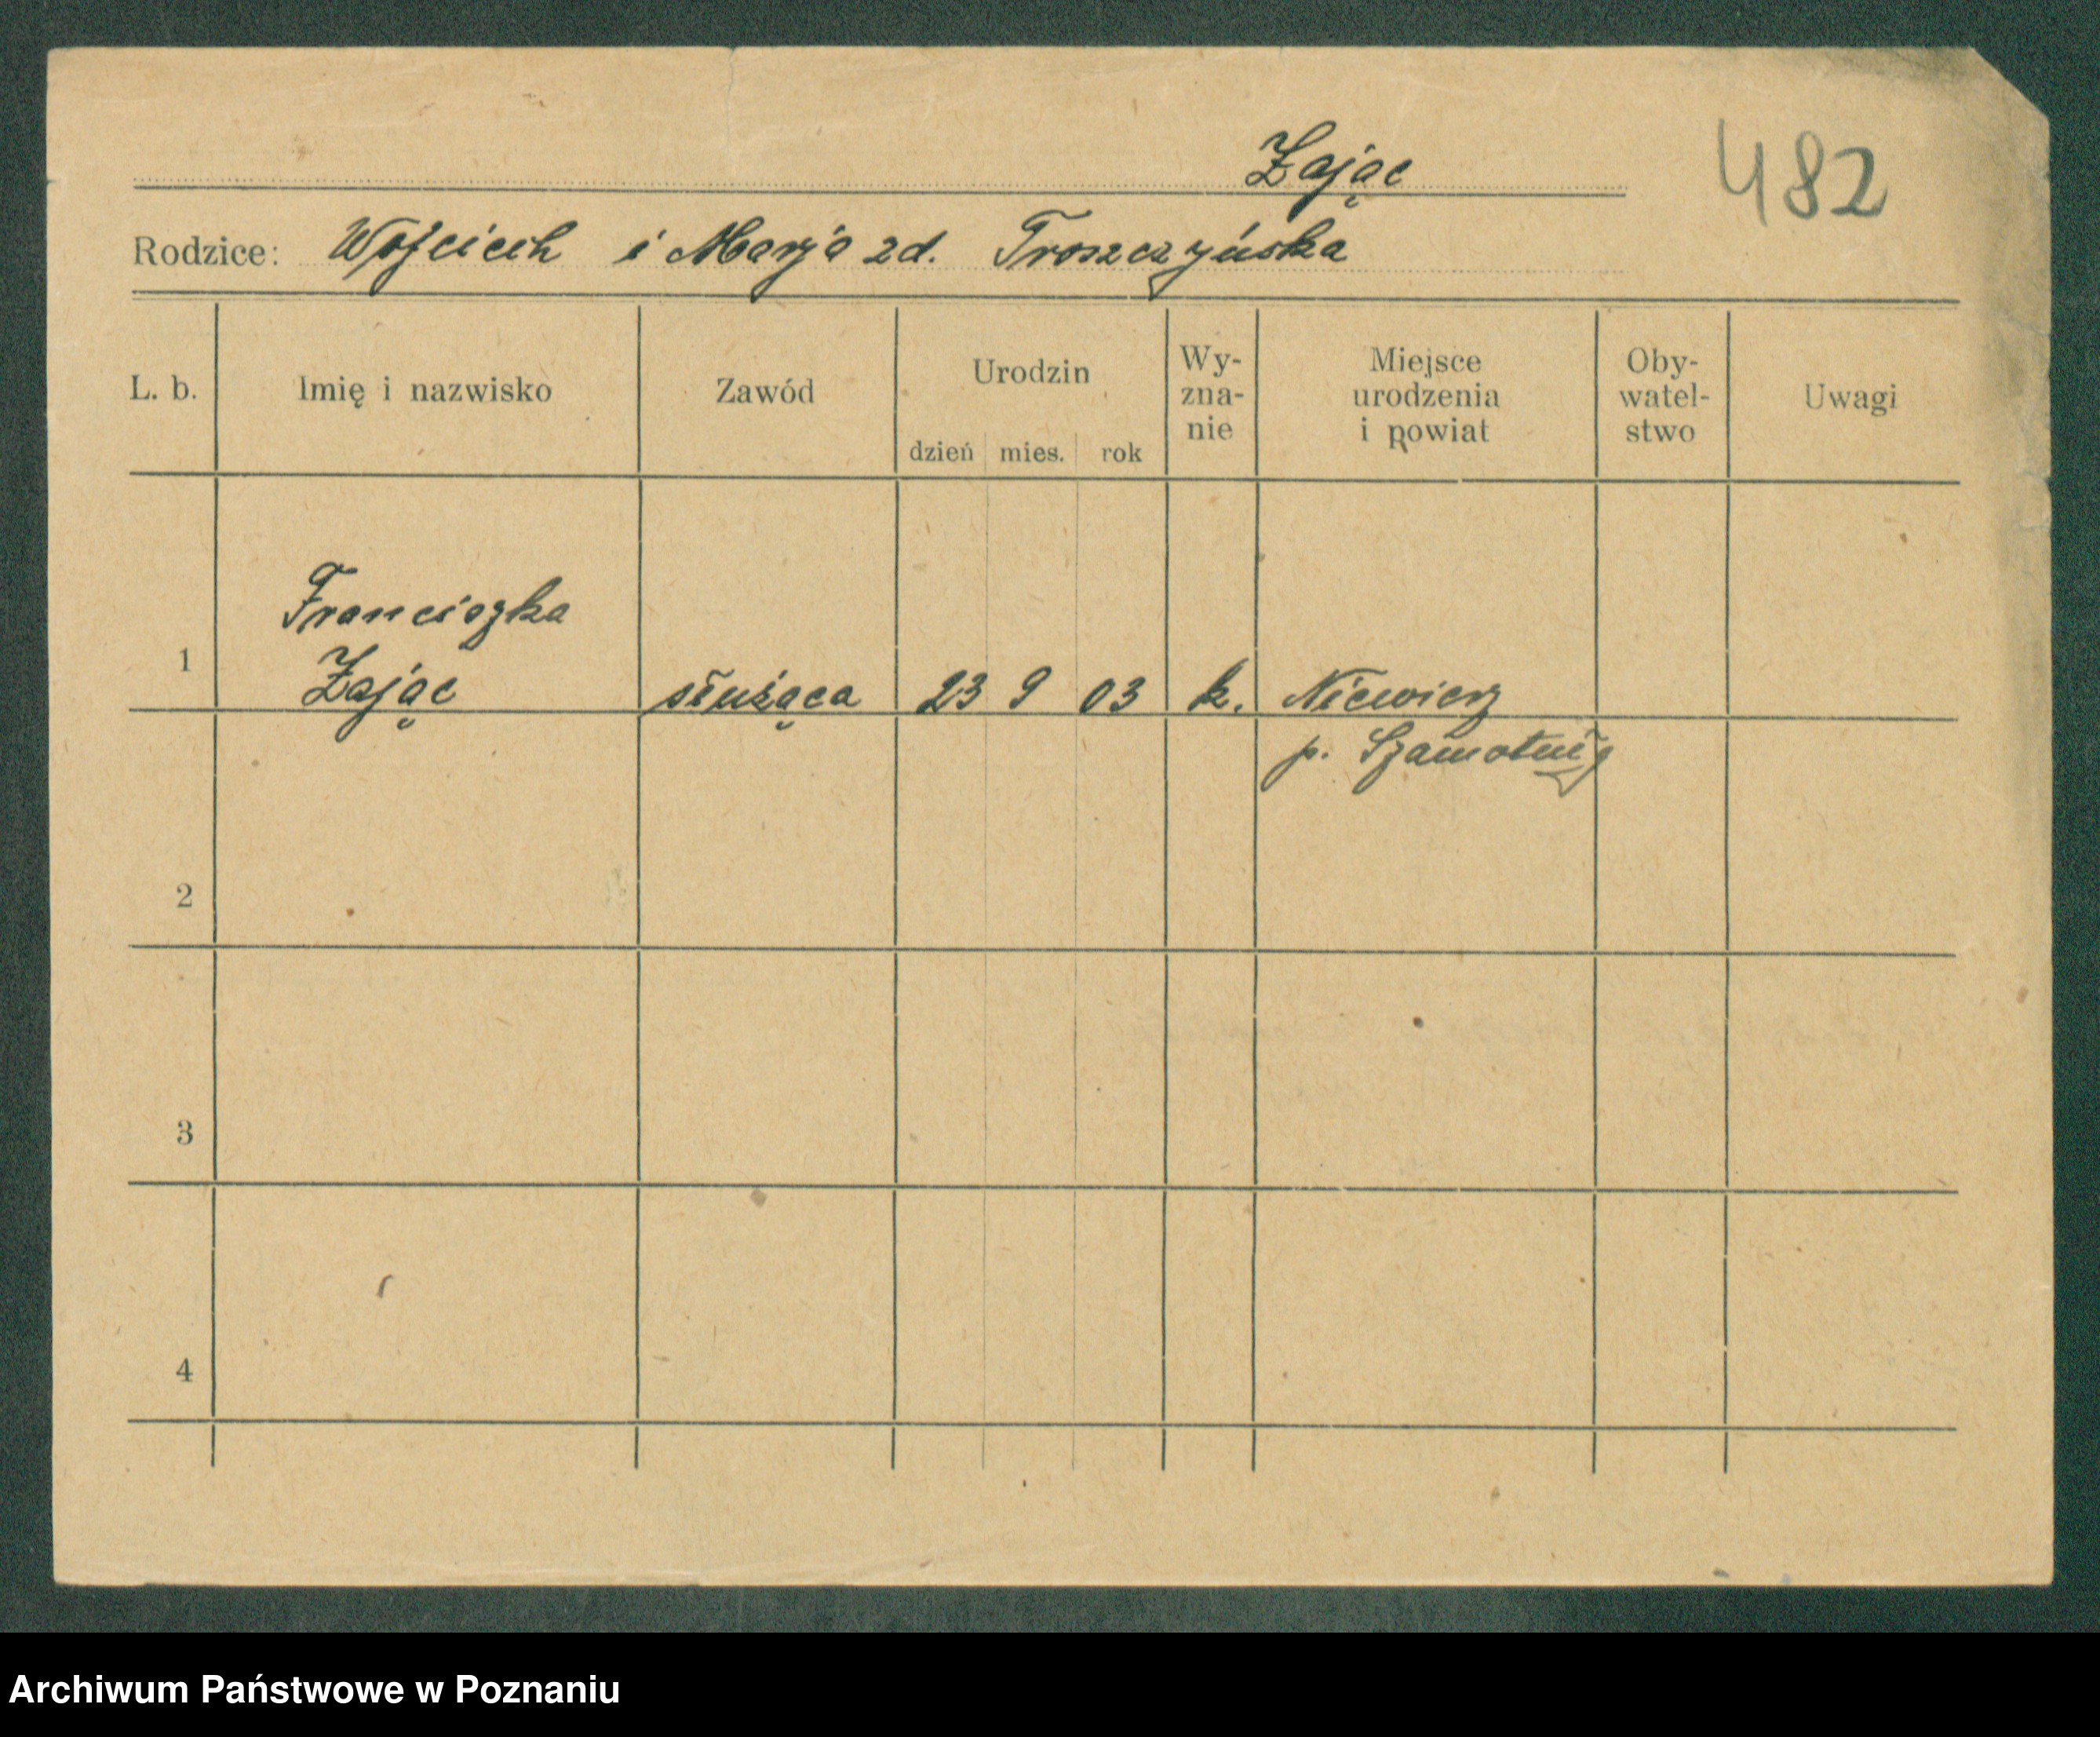 Zając
482
Rodzice: Wojciech i Marja zd. Troszczyńska
L. b.
Imię i nazwisko
Zawód
Urodzin
dzień mies. rok
Wy-
zna-
nie
Miejsce
urodzenia
i powiat
Oby-
watel-
stwo
Uwagi
Franciszka
1 Zając służąca 23 9 03 k. Niewierz
p. Szamotuły
2
3
4
Archiwum Państwowe w Poznaniu